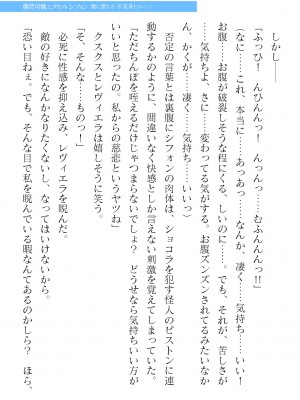 しかし――
「ふっひ！ んひんんっ！ んっんっ……むふんんんっ!!」
「なに……これ、本当に……あっあっ……なんか、凄く……気持ち……いい！
お腹……お腹が破裂しそうな程にくる、しいのに……。でも、それが、苦しさが
……気持ちよ、さに……変わってる気がする。お腹ズンズンされてるみたいなか
ん、かくが……凄く、気持ち、いいっ）
否定の言葉とは裏腹にシフォンの肉体は、ショコラを犯す怪人のピストンに連
動するかのように、間違いなく快感としか言えない刺激を覚えてしまっていた。
「ただちんぽを咥えるだけじゃつまらないでしょ？ どうせなら気持ちいい方が
いいと思ったの。私からの慈悲というヤツね」
クスクスとレヴィエラは嬉しそうに笑う。
「そ、そんな……ものっ」
必死に性感を抑え込み、レヴィエラを睨んだ。
敵の好きになんかなりたくないし、なってはいけないから。
「恐い目ねぇ。でも、そんな目で私を睨んでいる暇なんてあるのかしら？ ほら、